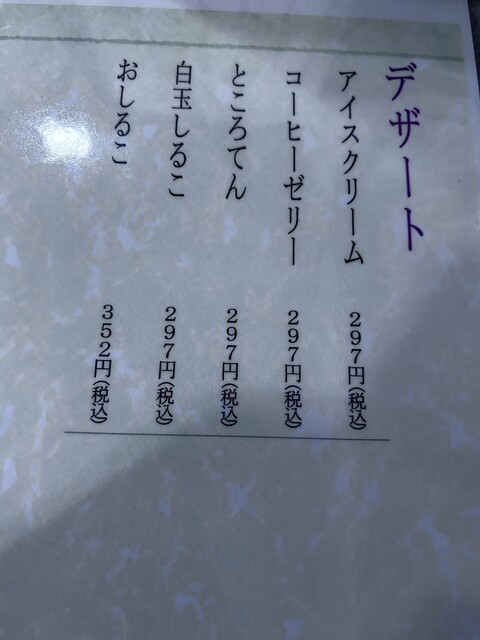 デザート
アイスクリーム 297円(税込)
コーヒーゼリー 297円(税込)
ところてん 297円(税込)
白玉しるこ 297円(税込)
おしるこ 352円(税込)